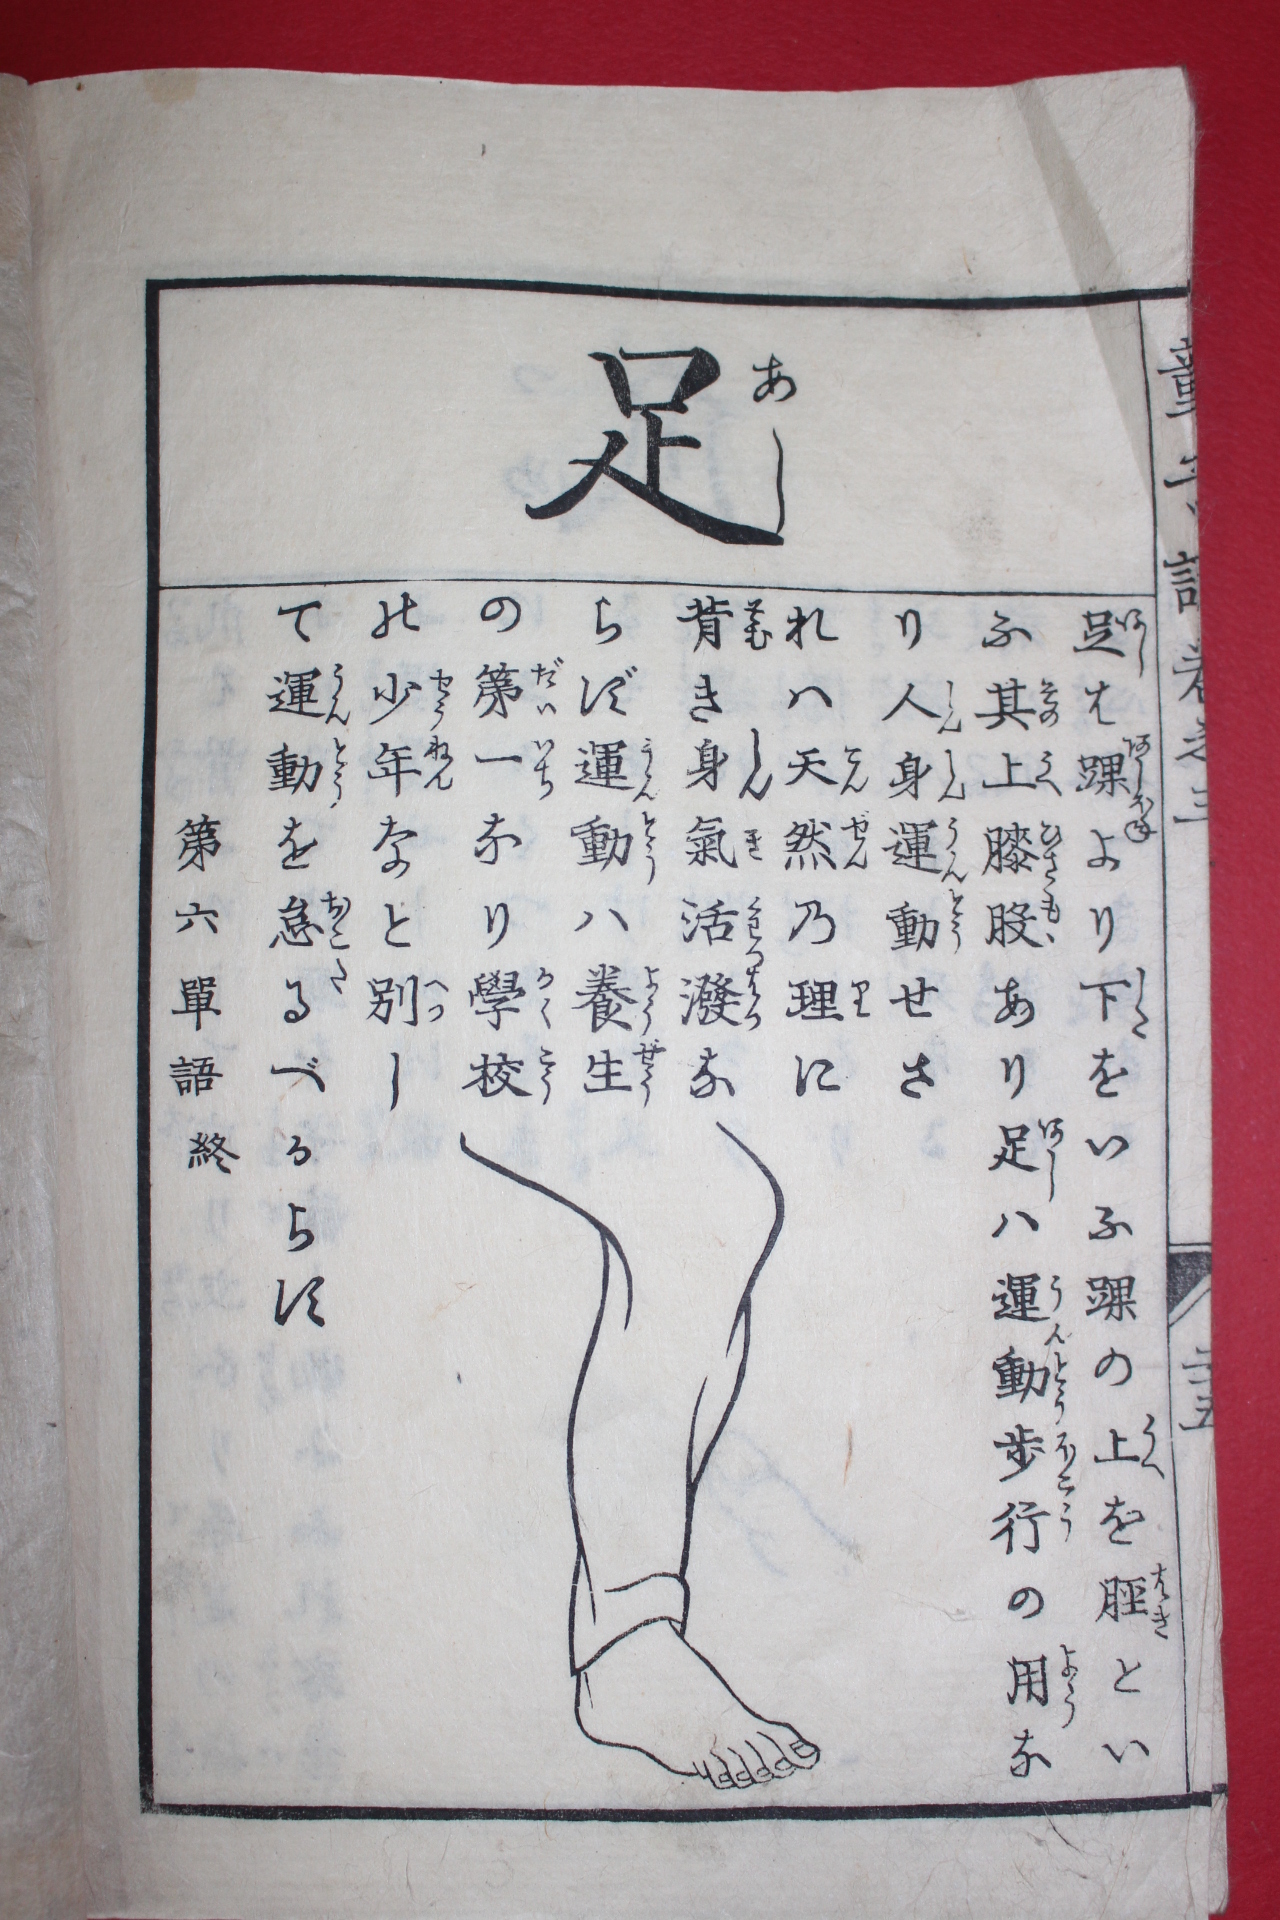 足
あし
足は踝より下をいふ踝の上を脛とい
ふ其上膝股あり足ハ運動歩行の用な
り人身運動せさ
れハ天然乃理に
背き身氣活潑な
らず運動ハ養生
の第一なり學校
の少年なと別し
て運動を怠るべからず
第六單語終